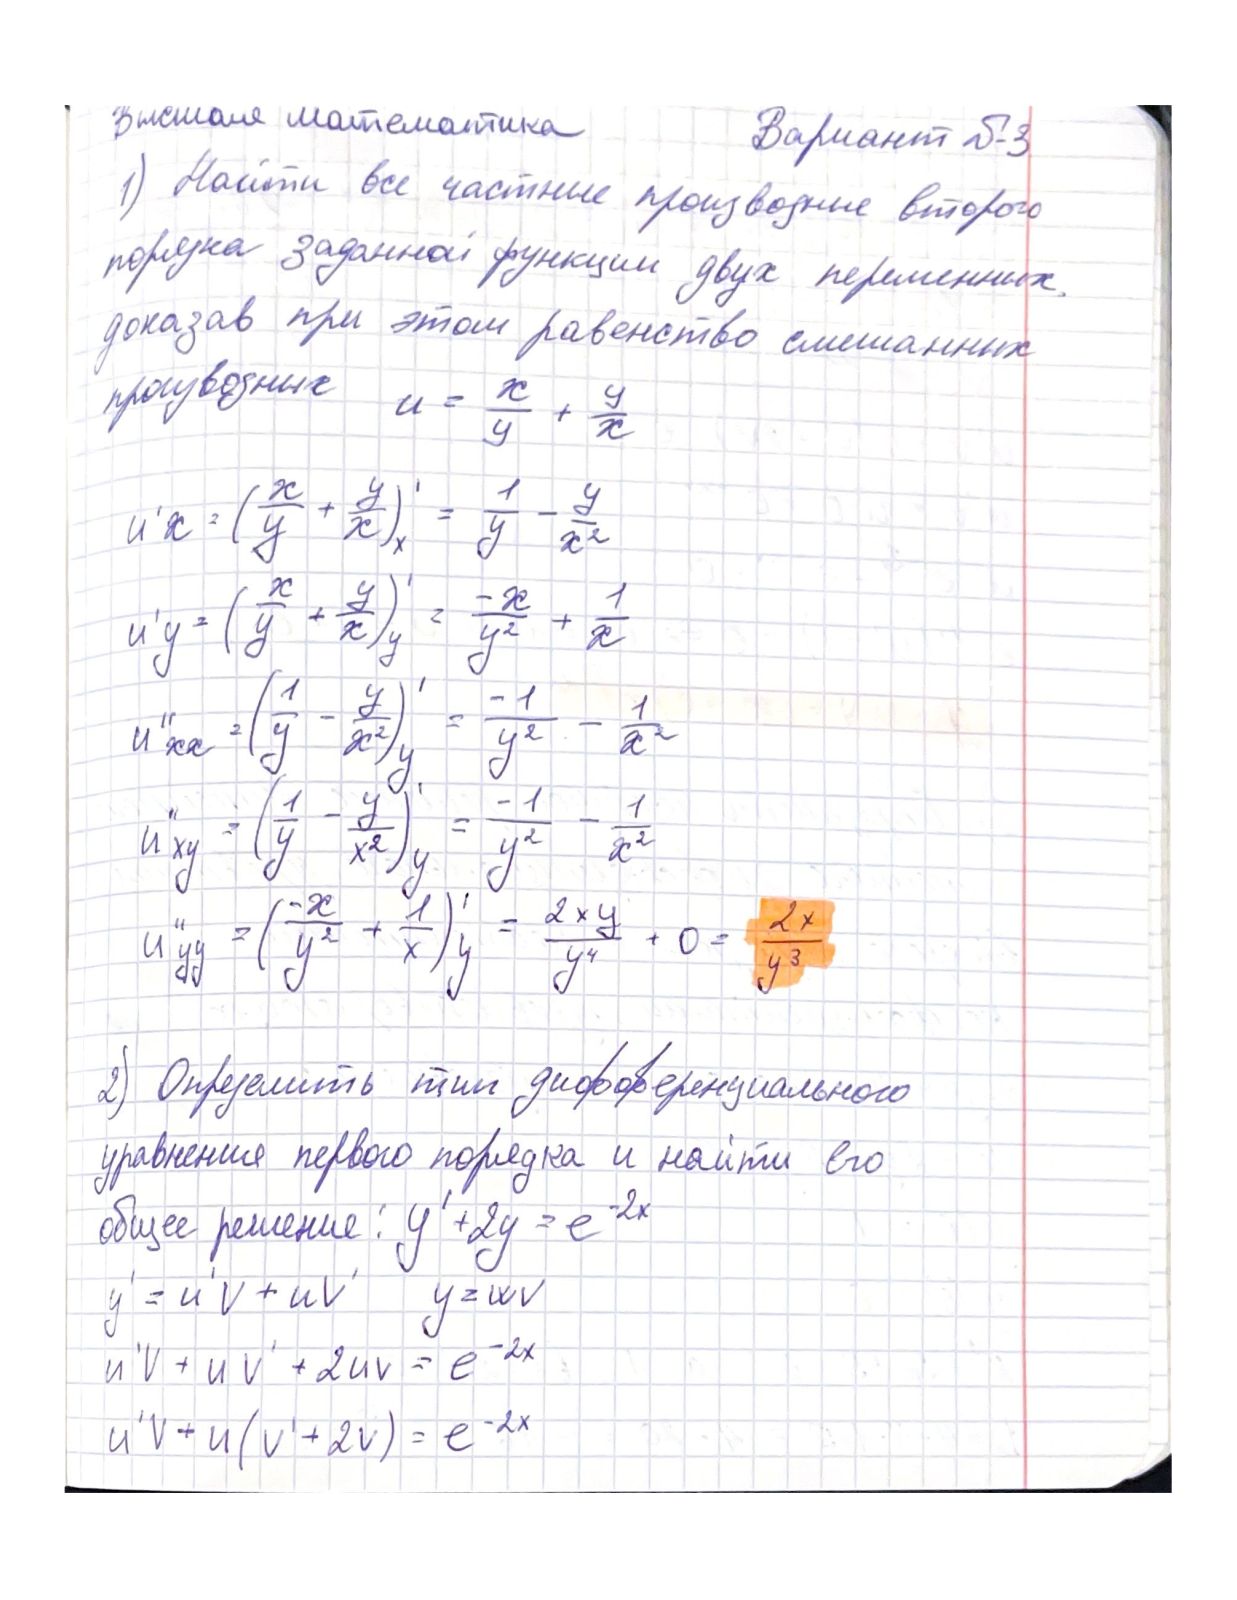 Высшая математика Вариант Б-3
1) Найти все частные производные второго
порядка заданной функции двух переменных,
доказав при этом равенство смешанных
производных u = x/y + y/x
u'x = (x/y + y/x)'x = 1/y - y/x²
u'y = (x/y + y/x)'y = -x/y² + 1/x
u''xx = (1/y - y/x²)'y = -1/y² - 1/x²
u''xy = (1/y - y/x²)'y = -1/y² - 1/x²
u''yy = (-x/y² + 1/x)'y = 2xy/y⁴ + 0 = 2x/y³
2) Определить тип дифференциального
уравнения первого порядка и найти его
общее решение: y' + 2y = e^-2x
y' = u'v + uv' y = uv
u'v + uv' + 2uv = e^-2x
u'v + u(v' + 2v) = e^-2x